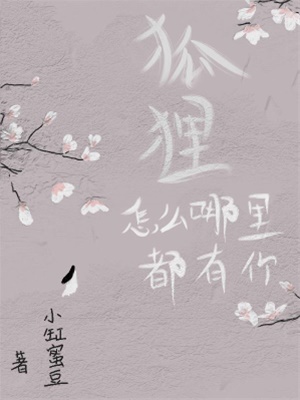 狐狸
怎么哪里
都有你
小缸蜜豆
著